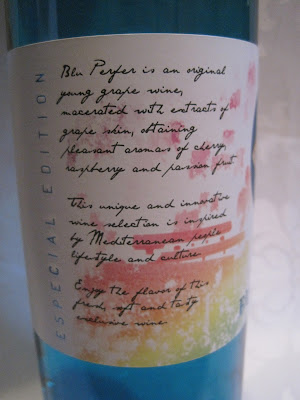 ESPECIAL EDITION
Blu Perfer is an original
young grape wine,
macerated with extracts of
grape skin, obtaining
pleasant aromas of cherry,
raspberry and passion fruit.
This unique and innovative
wine selection is inspired
by Mediterranean people
lifestyle and culture.
Enjoy the flavor of this
fresh, soft and tasty
exclusive wine.